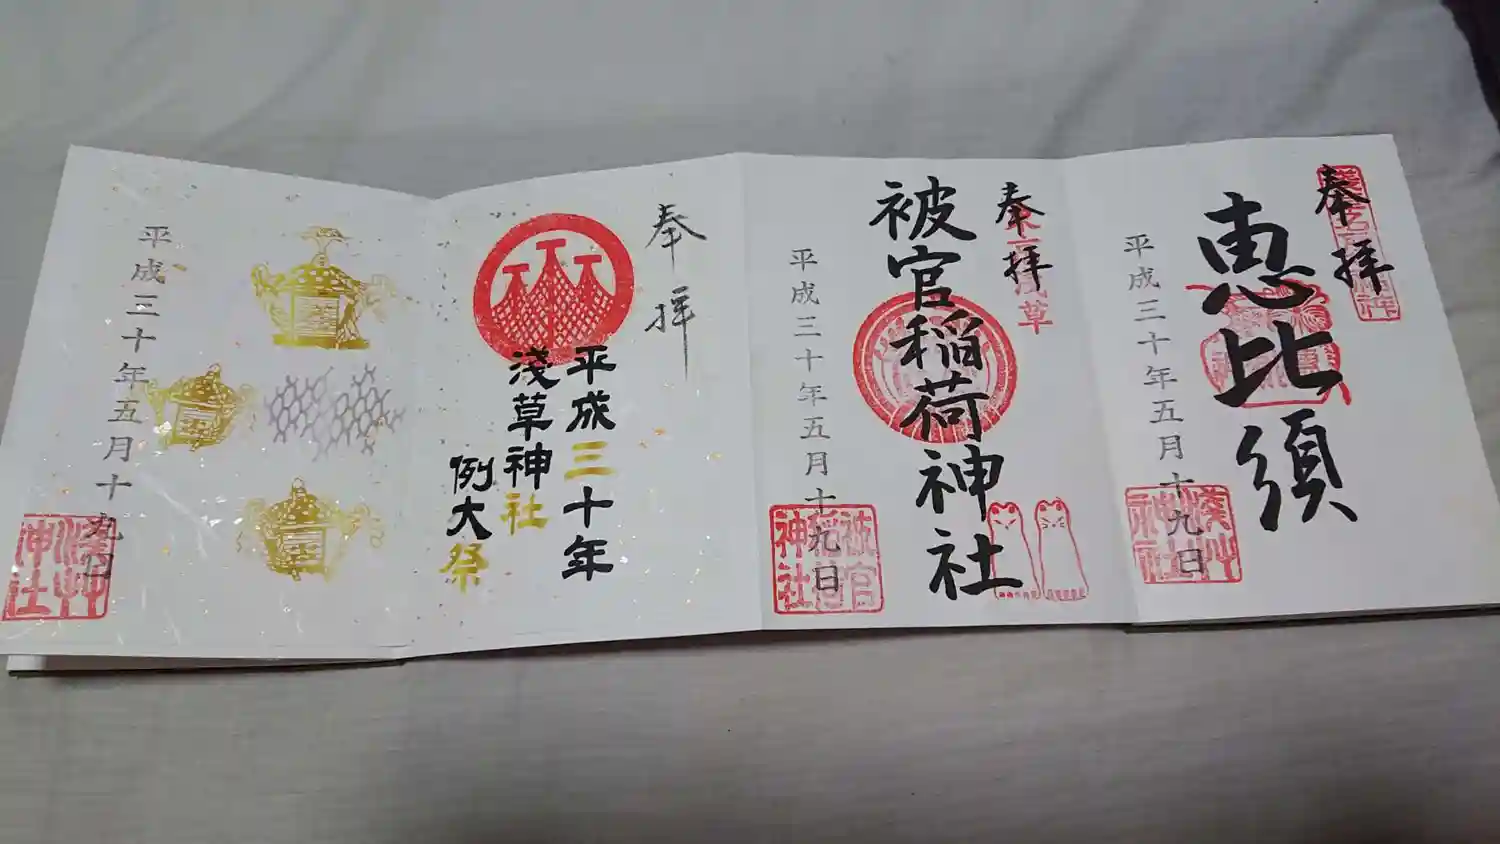 奉拝
恵比須
平成三十年五月十九日
淺草神社
奉拝
被官稲荷神社
平成三十年五月十九日
被官稲荷神社
奉拝
平成三十年
淺草神社
例大祭
平成三十年五月十九日
淺草神社